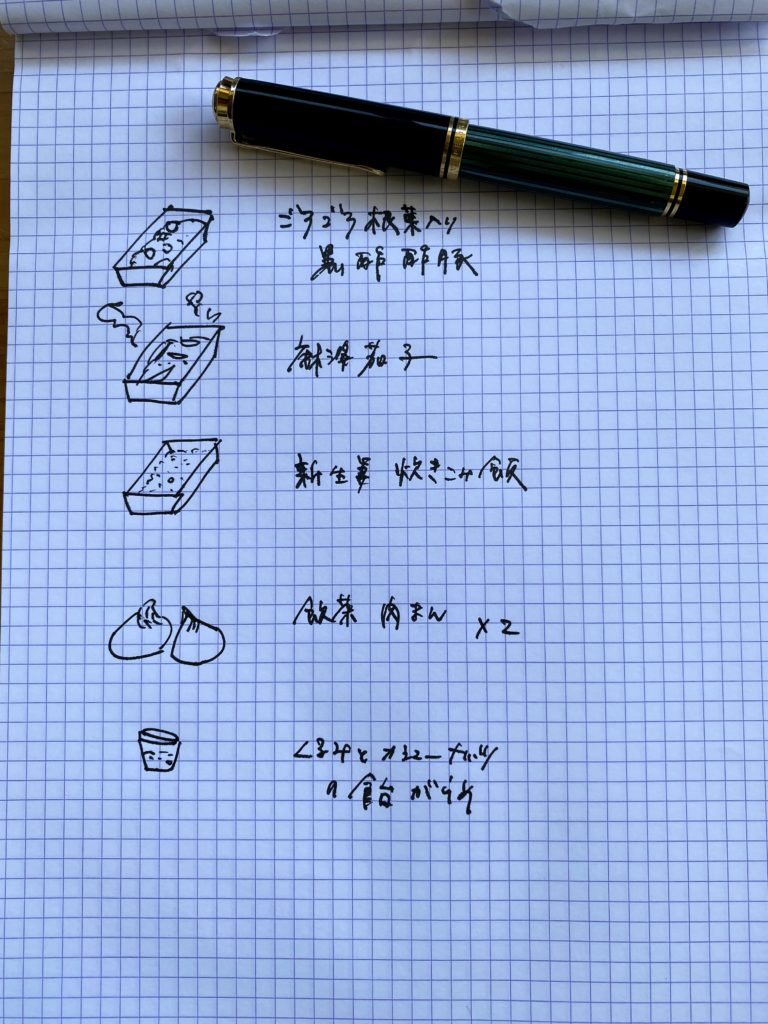 ごろごろ根菜入り
黒酢酢豚
麻辣茄子
新生姜 炊きこみ飯
飲茶 肉まん ×2
くるみとカシューナッツ
の飴がけ